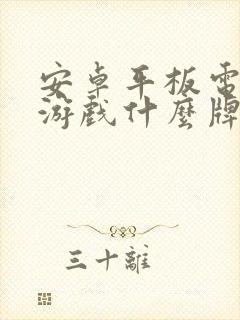 安卓平板電
游戲什麼牌
三十離